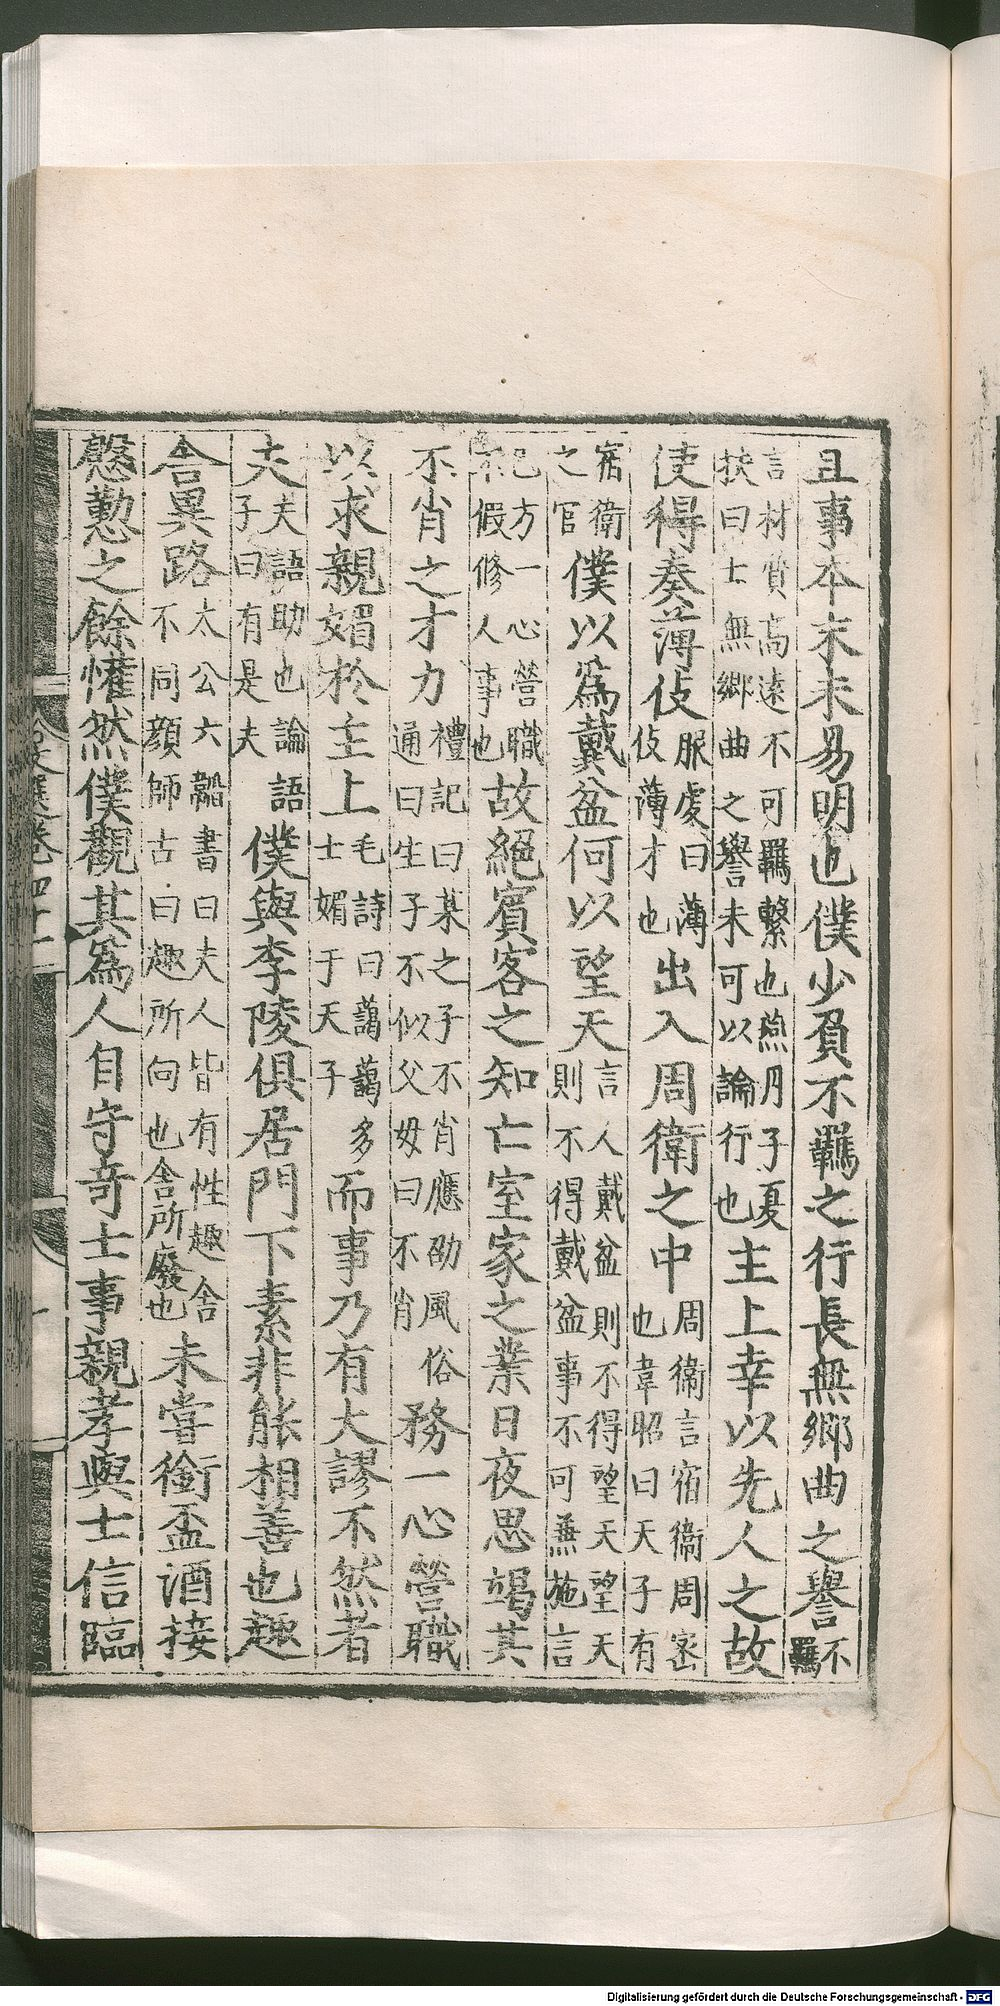 且事本末未易明也僕少負不羈之行長無鄉曲之譽不羈
言材質高遠不可羈繫也燕丹子夏
扶曰士無鄉曲之譽未可以論行也主上幸以先人之故
使得奏薄伎服虔曰薄
伎薄才也出入周衛之中周衛言宿衛周密
也韋昭曰天子有
宿衛
之官僕以爲戴盆何以望天言人戴盆則不得望天望天
則不得戴盆事不可兼施言
己方一心營職
不假脩人事也故絕賓客之知亡室家之業日夜思竭其
不肖之才力禮記曰某之子不肖應劭風俗
通曰生子不似父母曰不肖務一心營職
以求親媚於主上毛詩曰藹藹多
士媚于天子而事乃有大謬不然者
夫夫語助也論語
子曰有是夫僕與李陵俱居門下素非能相善也趣
舍異路太公六韜書曰夫人皆有性趣舍
不同顏師古曰趣所向也舍所廢也未嘗銜盃酒接
慇懃之餘懽然僕觀其爲人自守奇士事親孝與士信臨
文選卷四十一
Digitalisierung gefördert durch die Deutsche Forschungsgemeinschaft - DFG